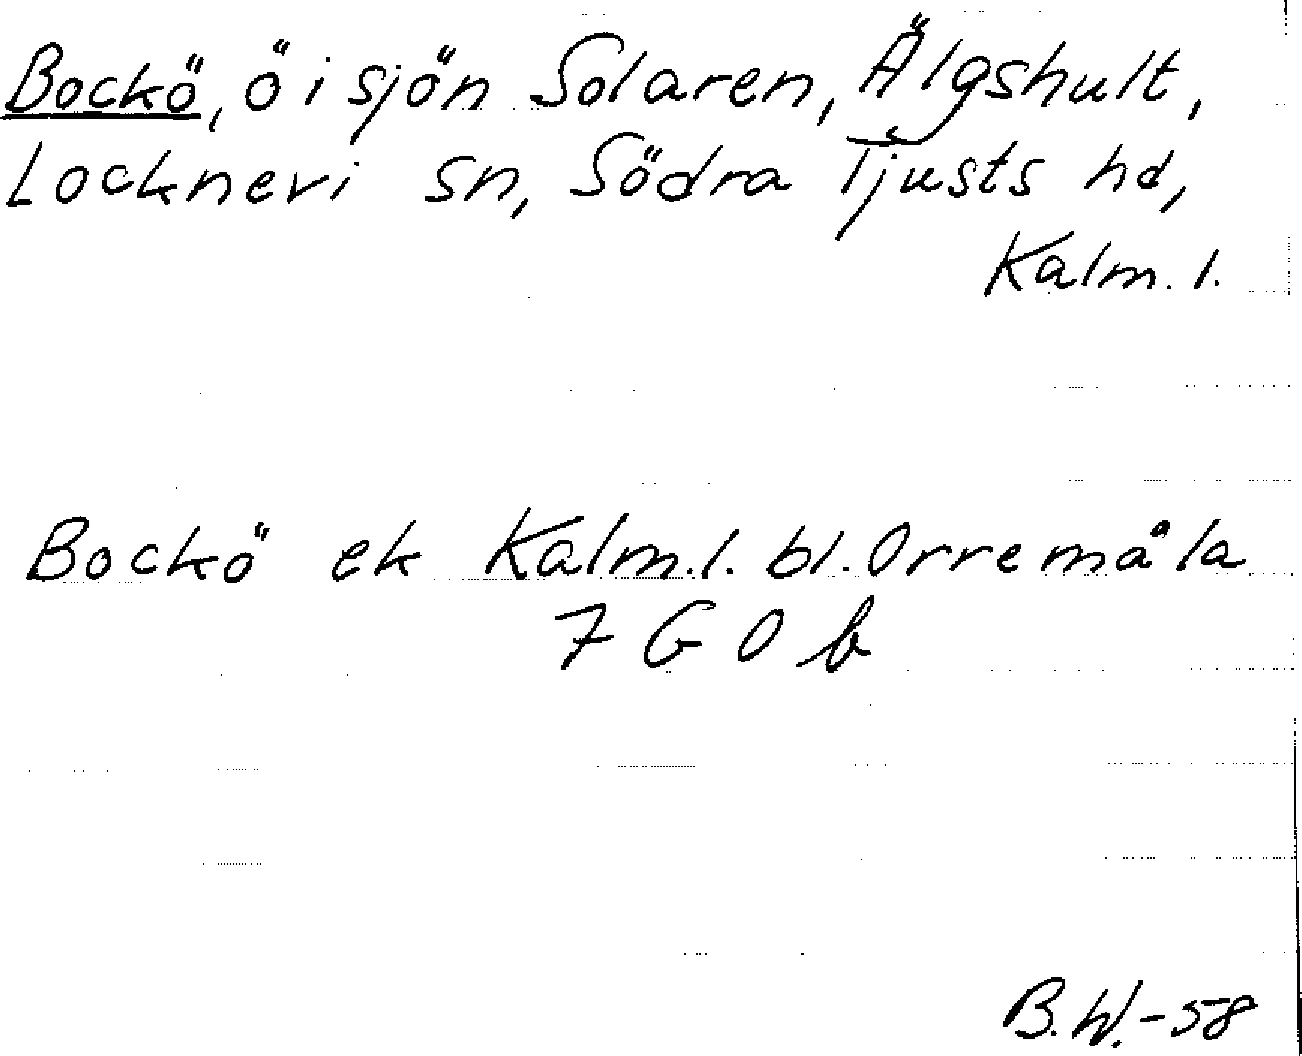 Bockö, ö i sjön Solaren, Älgshult,
Locknevi sn, Södra Tjusts hd,
Kalm. l.
Bockö ek Kalm. l. bl. Orremåla
7 G 0 b
B. W. - 58